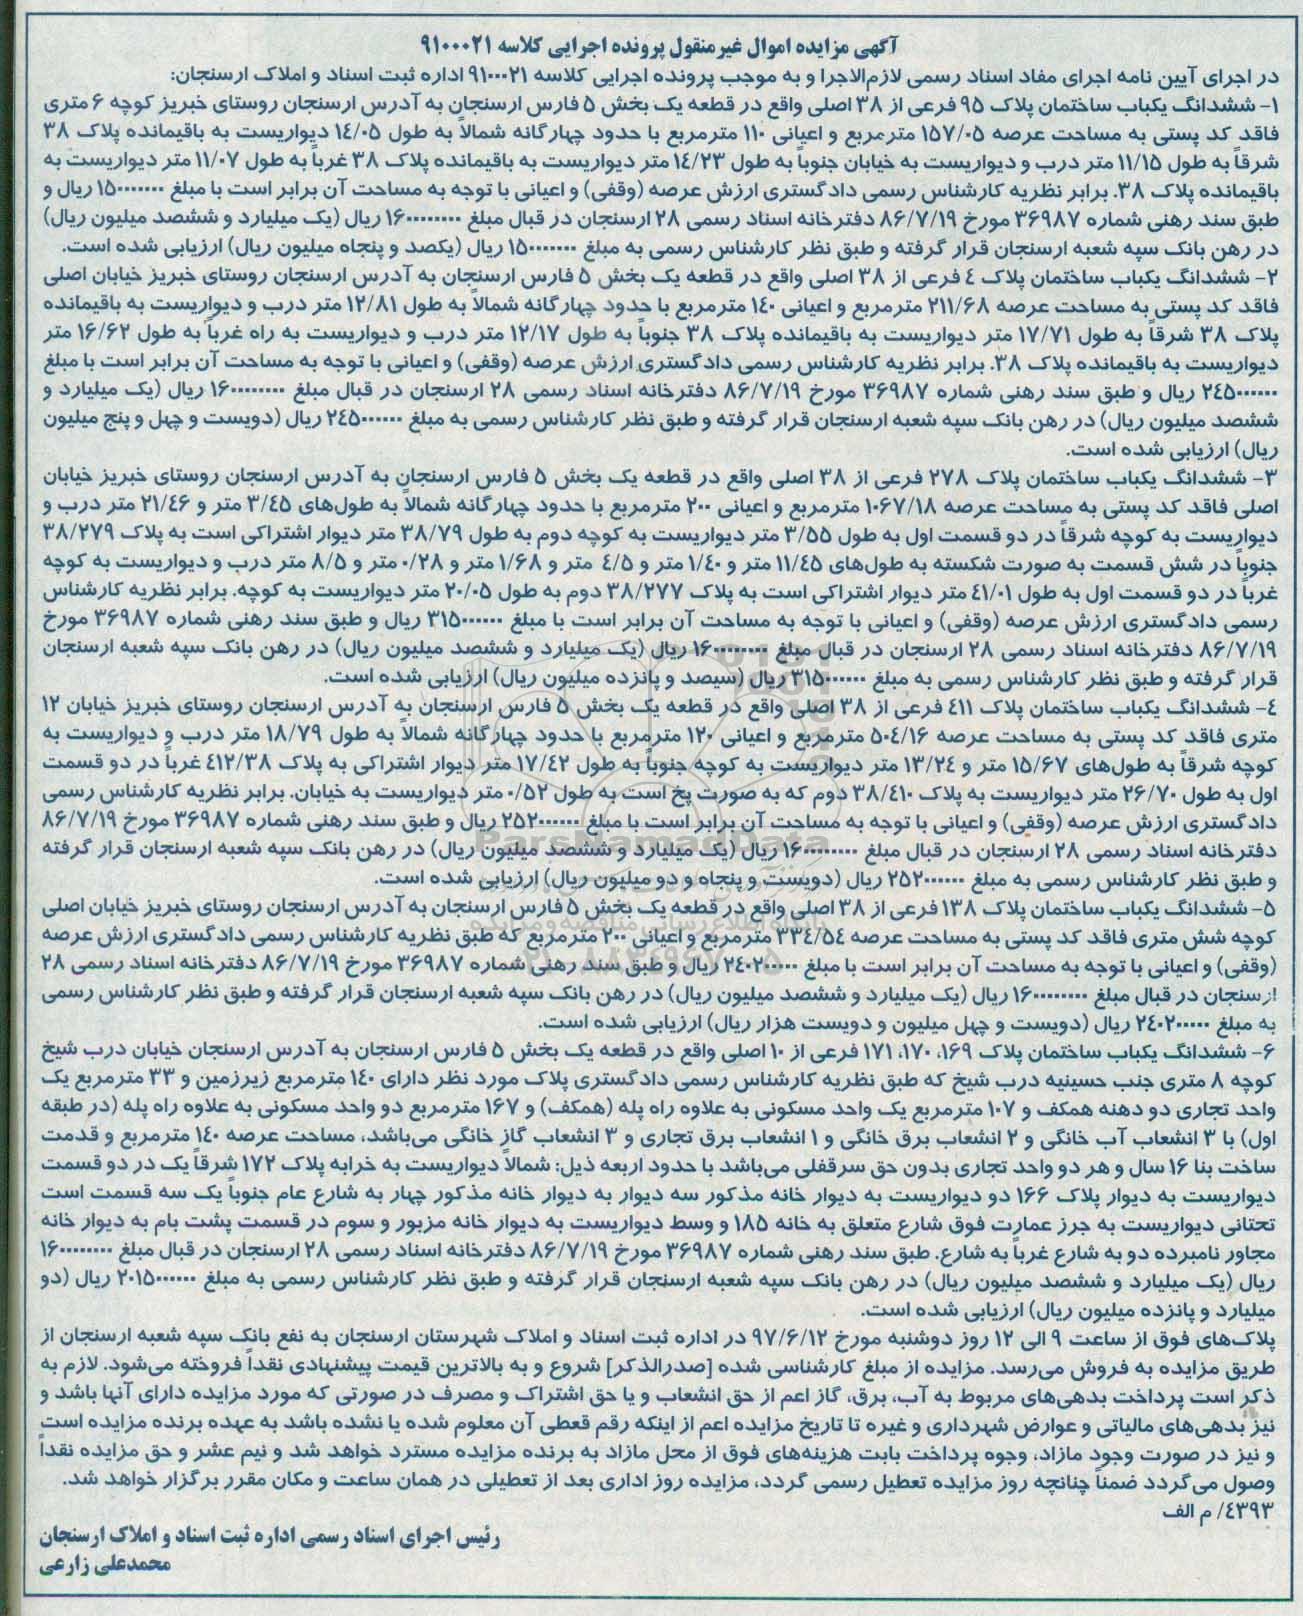 آگهی مزایده اموال غیرمنقول پرونده اجرایی کلاسه ۹۱۰۰۰۲۱
در اجرای آیین نامه اجرای مفاد اسناد رسمی لازم‌الاجرا و به موجب پرونده اجرایی کلاسه ۹۱۰۰۰۲۱ اداره ثبت اسناد و املاک ارسنجان:
۱- ششدانگ یکباب ساختمان پلاک ۹۵ فرعی از ۳۸ اصلی واقع در قطعه یک بخش ۵ فارس ارسنجان به آدرس ارسنجان روستای خبریز کوچه ۶ متری
فاقد کد پستی به مساحت عرصه ۱۵۷/۰۵ مترمربع و اعیانی ۱۱۰ مترمربع با حدود چهارگانه شمالاً به طول ۱۴/۰۵ دیواریست به باقیمانده پلاک ۳۸
شرقاً به طول ۱۱/۱۵ متر درب و دیواریست به خیابان جنوباً به طول ۱۴/۲۳ متر دیواریست به باقیمانده پلاک ۳۸ غرباً به طول ۱۱/۰۷ متر دیواریست به
باقیمانده پلاک ۳۸. برابر نظریه کارشناس رسمی دادگستری ارزش عرصه (وقفی) و اعیانی با توجه به مساحت آن برابر است با مبلغ ۱۵۰۰۰۰۰۰۰ ریال و
طبق سند رهنی شماره ۳۶۹۸۷ مورخ ۸۶/۷/۱۹ دفترخانه اسناد رسمی ۲۸ ارسنجان در قبال مبلغ ۱۶۰۰۰۰۰۰۰۰ ریال (یک میلیارد و ششصد میلیون ریال)
در رهن بانک سپه شعبه ارسنجان قرار گرفته و طبق نظر کارشناس رسمی به مبلغ ۱۵۰۰۰۰۰۰۰ ریال (یکصد و پنجاه میلیون ریال) ارزیابی شده است.
۲- ششدانگ یکباب ساختمان پلاک ٤ فرعی از ۳۸ اصلی واقع در قطعه یک بخش ۵ فارس ارسنجان به آدرس ارسنجان روستای خبریز خیابان اصلی
فاقد کد پستی به مساحت عرصه ۲۱۱/۶۸ مترمربع و اعیانی ۱۴۰ مترمربع با حدود چهارگانه شمالاً به طول ۱۲/۸۱ متر درب و دیواریست به باقیمانده
پلاک ۳۸ شرقاً به طول ۱۷/۷۱ متر دیواریست به باقیمانده پلاک ۳۸ جنوباً به طول ۱۲/۱۷ متر درب و دیواریست به راه غرباً به طول ۱۶/۶۲ متر
دیواریست به باقیمانده پلاک ۳۸. برابر نظریه کارشناس رسمی دادگستری ارزش عرصه (وقفی) و اعیانی با توجه به مساحت آن برابر است با مبلغ
۲۴۵۰۰۰۰۰۰ ریال و طبق سند رهنی شماره ۳۶۹۸۷ مورخ ۸۶/۷/۱۹ دفترخانه اسناد رسمی ۲۸ ارسنجان در قبال مبلغ ۱۶۰۰۰۰۰۰۰۰ ریال (یک میلیارد و
ششصد میلیون ریال) در رهن بانک سپه شعبه ارسنجان قرار گرفته و طبق نظر کارشناس رسمی به مبلغ ۲۴۵۰۰۰۰۰۰ ریال (دویست و چهل و پنج میلیون
ریال) ارزیابی شده است.
۳- ششدانگ یکباب ساختمان پلاک ۲۷۸ فرعی از ۳۸ اصلی واقع در قطعه یک بخش ۵ فارس ارسنجان به آدرس ارسنجان روستای خبریز خیابان
اصلی فاقد کد پستی به مساحت عرصه ۱۰۶۷/۱۸ مترمربع و اعیانی ۲۰۰ مترمربع با حدود چهارگانه شمالاً به طول‌های ۳/۴۵ متر و ۲۱/۴۶ متر درب و
دیواریست به کوچه شرقاً در دو قسمت اول به طول ۳/۵۵ متر دیواریست به کوچه دوم به طول ۳۸/۷۹ متر دیوار اشتراکی است به پلاک ۳۸/۲۷۹
جنوباً در شش قسمت به صورت شکسته به طول‌های ۱۱/۴۵ متر و ۱/۴۰ متر و ٤/۵ متر و ۱/۶۸ متر و ۰/۲۸ متر و ۸/۵ متر درب و دیواریست به کوچه
غرباً در دو قسمت اول به طول ۴۱/۰۱ متر دیوار اشتراکی است به پلاک ۳۸/۲۷۷ دوم به طول ۲۰/۰۵ متر دیواریست به کوچه. برابر نظریه کارشناس
رسمی دادگستری ارزش عرصه (وقفی) و اعیانی با توجه به مساحت آن برابر است با مبلغ ۳۱۵۰۰۰۰۰۰ ریال و طبق سند رهنی شماره ۳۶۹۸۷ مورخ
۸۶/۷/۱۹ دفترخانه اسناد رسمی ۲۸ ارسنجان در قبال مبلغ ۱۶۰۰۰۰۰۰۰۰ ریال (یک میلیارد و ششصد میلیون ریال) در رهن بانک سپه شعبه ارسنجان
قرار گرفته و طبق نظر کارشناس رسمی به مبلغ ۳۱۵۰۰۰۰۰۰ ریال (سیصد و پانزده میلیون ریال) ارزیابی شده است.
٤- ششدانگ یکباب ساختمان پلاک ٤۱۱ فرعی از ۳۸ اصلی واقع در قطعه یک بخش ۵ فارس ارسنجان به آدرس ارسنجان روستای خبریز خیابان ۱۲
متری فاقد کد پستی به مساحت عرصه ۵۰٤/۱۶ مترمربع و اعیانی ۱۲۰ مترمربع با حدود چهارگانه شمالاً به طول ۱۸/۷۹ متر درب و دیواریست به
کوچه شرقاً به طول‌های ۱۵/۶۷ متر و ۱۳/۲٤ متر دیواریست به کوچه جنوباً به طول ۱۷/٤۲ متر دیوار اشتراکی به پلاک ٤۱۲/۳۸ غرباً در دو قسمت
اول به طول ۲۶/۷۰ متر دیواریست به پلاک ۳۸/٤۱۰ دوم که به صورت پخ است به طول ۰/۵۲ متر دیواریست به خیابان. برابر نظریه کارشناس رسمی
دادگستری ارزش عرصه (وقفی) و اعیانی با توجه به مساحت آن برابر است با مبلغ ۲۵۲۰۰۰۰۰۰ ریال و طبق سند رهنی شماره ۳۶۹۸۷ مورخ ۸۶/۷/۱۹
دفترخانه اسناد رسمی ۲۸ ارسنجان در قبال مبلغ ۱۶۰۰۰۰۰۰۰۰ ریال (یک میلیارد و ششصد میلیون ریال) در رهن بانک سپه شعبه ارسنجان قرار گرفته
و طبق نظر کارشناس رسمی به مبلغ ۲۵۲۰۰۰۰۰۰ ریال (دویست و پنجاه و دو میلیون ریال) ارزیابی شده است.
۵- ششدانگ یکباب ساختمان پلاک ۱۳۸ فرعی از ۳۸ اصلی واقع در قطعه یک بخش ۵ فارس ارسنجان به آدرس ارسنجان روستای خبریز خیابان اصلی
کوچه شش متری فاقد کد پستی به مساحت عرصه ۳۳٤/۵٤ مترمربع و اعیانی ۲۰۰ مترمربع که طبق نظریه کارشناس رسمی دادگستری ارزش عرصه
(وقفی) و اعیانی با توجه به مساحت آن برابر است با مبلغ ۲٤۰۲۰۰۰۰۰ ریال و طبق سند رهنی شماره ۳۶۹۸۷ مورخ ۸۶/۷/۱۹ دفترخانه اسناد رسمی ۲۸
ارسنجان در قبال مبلغ ۱۶۰۰۰۰۰۰۰۰ ریال (یک میلیارد و ششصد میلیون ریال) در رهن بانک سپه شعبه ارسنجان قرار گرفته و طبق نظر کارشناس رسمی
به مبلغ ۲٤۰۲۰۰۰۰۰ ریال (دویست و چهل میلیون و دویست هزار ریال) ارزیابی شده است.
۶- ششدانگ یکباب ساختمان پلاک ۱۶۹، ۱۷۰، ۱۷۱ فرعی از ۱۰ اصلی واقع در قطعه یک بخش ۵ فارس ارسنجان به آدرس ارسنجان خیابان درب شیخ
کوچه ۸ متری جنب حسینیه درب شیخ که طبق نظریه کارشناس رسمی دادگستری پلاک مورد نظر دارای ۱۴۰ مترمربع زیرزمین و ۳۳ مترمربع یک
واحد تجاری دو دهنه همکف و ۱۰۷ مترمربع یک واحد مسکونی به علاوه راه پله (همکف) و ۱۶۷ مترمربع دو واحد مسکونی به علاوه راه پله (در طبقه
اول) با ۳ انشعاب آب خانگی و ۲ انشعاب برق خانگی و ۱ انشعاب برق تجاری و ۳ انشعاب گاز خانگی می‌باشد، مساحت عرصه ۱۴۰ مترمربع و قدمت
ساخت بنا ۱۶ سال و هر دو واحد تجاری بدون حق سرقفلی می‌باشد با حدود اربعه ذیل: شمالاً دیواریست به خرابه پلاک ۱۷۲ شرقاً یک در دو قسمت
دیواریست به دیوار پلاک ۱۶۶ دو دیواریست به دیوار خانه مذکور سه دیوار به دیوار خانه مذکور چهار به شارع عام جنوباً یک سه قسمت است
تحتانی دیواریست به جرز عمارت فوق شارع متعلق به خانه ۱۸۵ و وسط دیواریست به دیوار خانه مزبور و سوم در قسمت پشت بام به دیوار خانه
مجاور نامبرده دو به شارع غرباً به شارع. طبق سند رهنی شماره ۳۶۹۸۷ مورخ ۸۶/۷/۱۹ دفترخانه اسناد رسمی ۲۸ ارسنجان در قبال مبلغ ۱۶۰۰۰۰۰۰۰۰
ریال (یک میلیارد و ششصد میلیون ریال) در رهن بانک سپه شعبه ارسنجان قرار گرفته و طبق نظر کارشناس رسمی به مبلغ ۲۰۱۵۰۰۰۰۰۰ ریال (دو
میلیارد و پانزده میلیون ریال) ارزیابی شده است.
پلاک‌های فوق از ساعت ۹ الی ۱۲ روز دوشنبه مورخ ۹۷/۶/۱۲ در اداره ثبت اسناد و املاک شهرستان ارسنجان به نفع بانک سپه شعبه ارسنجان از
طریق مزایده به فروش می‌رسد. مزایده از مبلغ کارشناسی شده [صدرالذکر] شروع و به بالاترین قیمت پیشنهادی نقداً فروخته می‌شود. لازم به
ذکر است پرداخت بدهی‌های مربوط به آب، برق، گاز اعم از حق انشعاب و یا حق اشتراک و مصرف در صورتی که مورد مزایده دارای آنها باشد و
نیز بدهی‌های مالیاتی و عوارض شهرداری و غیره تا تاریخ مزایده اعم از اینکه رقم قعطی آن معلوم شده یا نشده باشد به عهده برنده مزایده است
و نیز در صورت وجود مازاد، وجوه پرداخت بابت هزینه‌های فوق از محل مازاد به برنده مزایده مسترد خواهد شد و نیم عشر و حق مزایده نقداً
وصول می‌گردد ضمناً چنانچه روز مزایده تعطیل رسمی گردد، مزایده روز اداری بعد از تعطیلی در همان ساعت و مکان مقرر برگزار خواهد شد.
٤۳۹۳/ م الف
رئیس اجرای اسناد رسمی اداره ثبت اسناد و املاک ارسنجان
محمدعلی زارعی
ParsNamadData